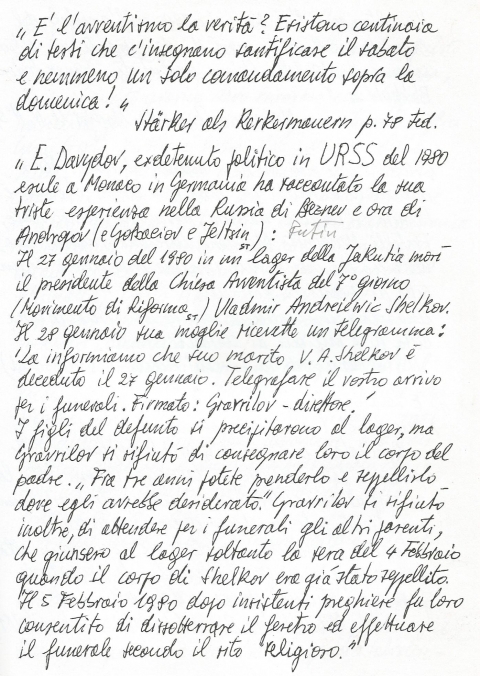 „ E' l'avventismo la verità? Esistono centinaia
di testi che c'insegnano santificare il sabato
e nemmeno un solo comandamento sopra la
domenica! "
Stärker als Kerkermauern p. 78 Ted.
„ E. Davydov, exdetenuto politico in URSS del 1980
esule a Monaco in Germania ha raccontato la sua
triste esperienza nella Russia di Breznev e ora di
Andropov (e Gorbaciov e Jeltsin) : Putin
Il 27 gennaio del 1980 in un lager della Jakutia morì
il presidente della Chiesa Avventista del 7° giorno
(Movimento di Riforma) Vladmir Andreilewic Shelkov.
Il 28 gennaio sua moglie ricevette un telegramma:
'La informiamo che suo marito V. A. Shelkov è
deceduto il 27 gennaio. Telegrafare il vostro arrivo
per i funerali. Firmato: Gravrilov - direttore.'
I figli del defunto si precipitarono al lager, ma
Gravrilov si rifiutò di consegnare loro il corpo del
padre. „ Fra tre anni potete prenderlo e seppellirlo
dove egli avrebbe desiderato." Gravrilov si rifiutò
inoltre, di attendere per i funerali gli altri parenti,
che giunsero al lager soltanto la sera del 4 Febbraio
quando il corpo di Shelkov era già stato seppellito.
Il 5 Febbraio 1980 dopo insistenti preghiere fu loro
consentito di dissotterrare il feretro ed effettuare
il funerale secondo il rito religioso."